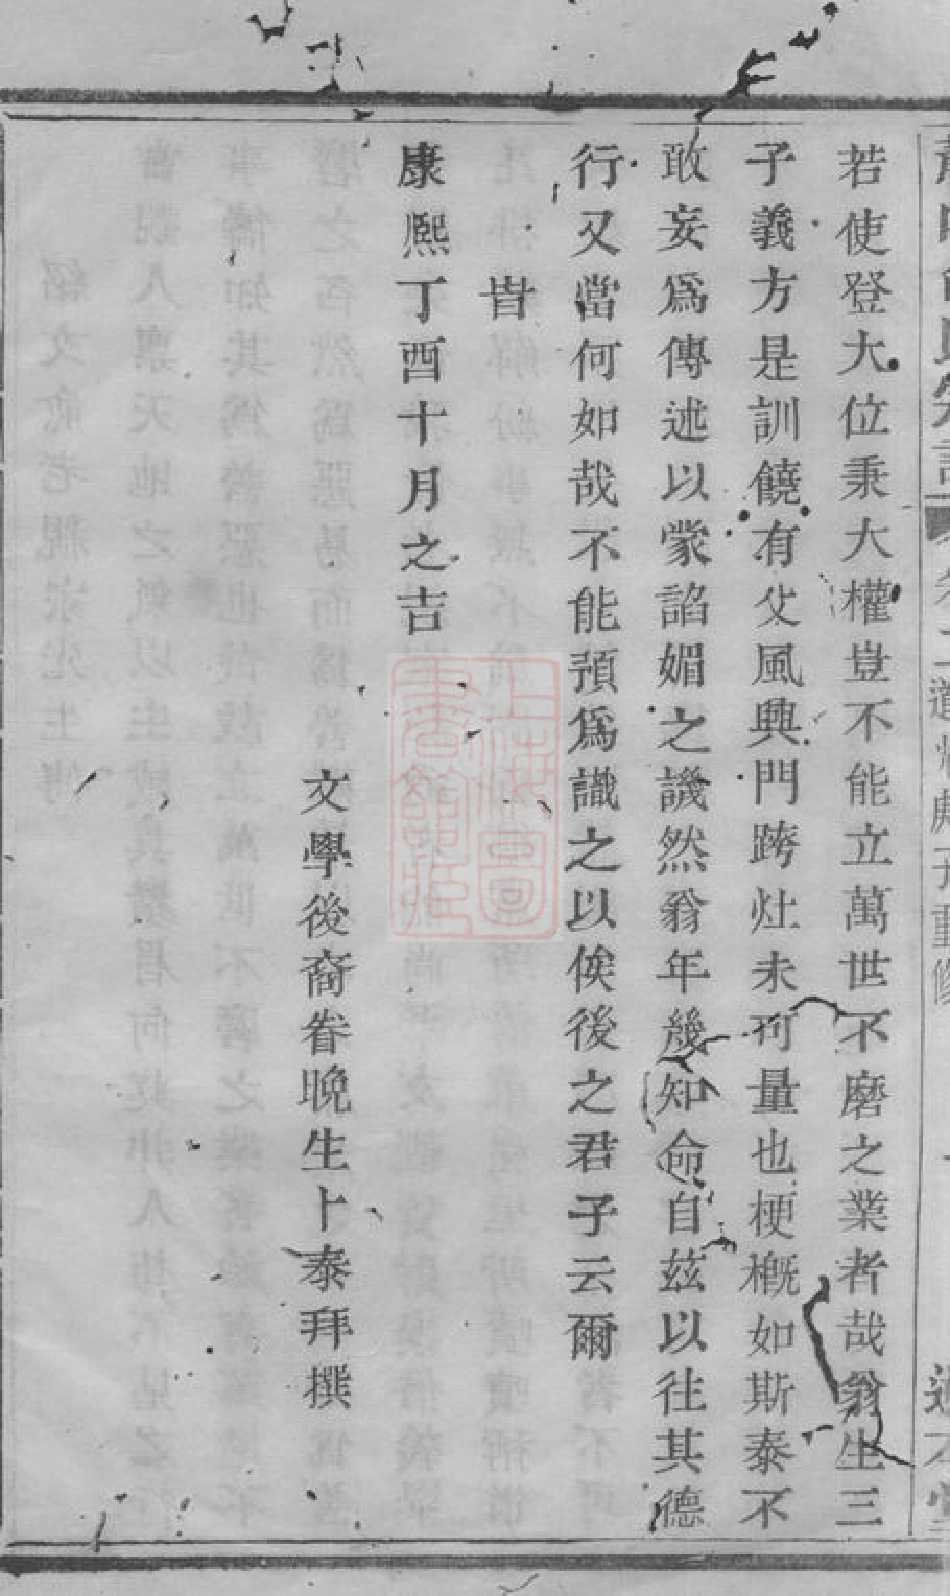 若使登大位秉大權豈不能立萬世不磨之業者哉翁生三
子義方是訓饒有父風興門跨灶未可量也梗概如斯泰不
敢妄爲傳述以蒙諂媚之譏然翁年幾知命自茲以往其德
行又當何如哉不能預爲識之以俟後之君子云爾
旹
康熙丁酉十月之吉
文學後裔眷晚生卜泰拜撰
上海圖書館藏